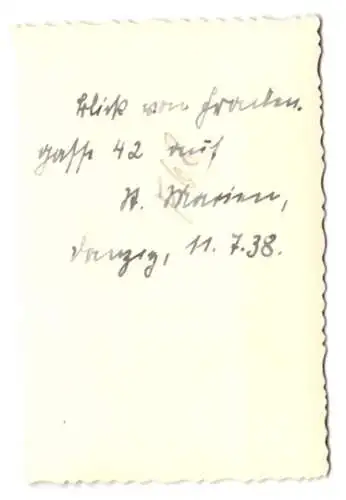 Blick von Frauen-
gasse 42 auf
St. Marien,
Danzig, 11.7.38.